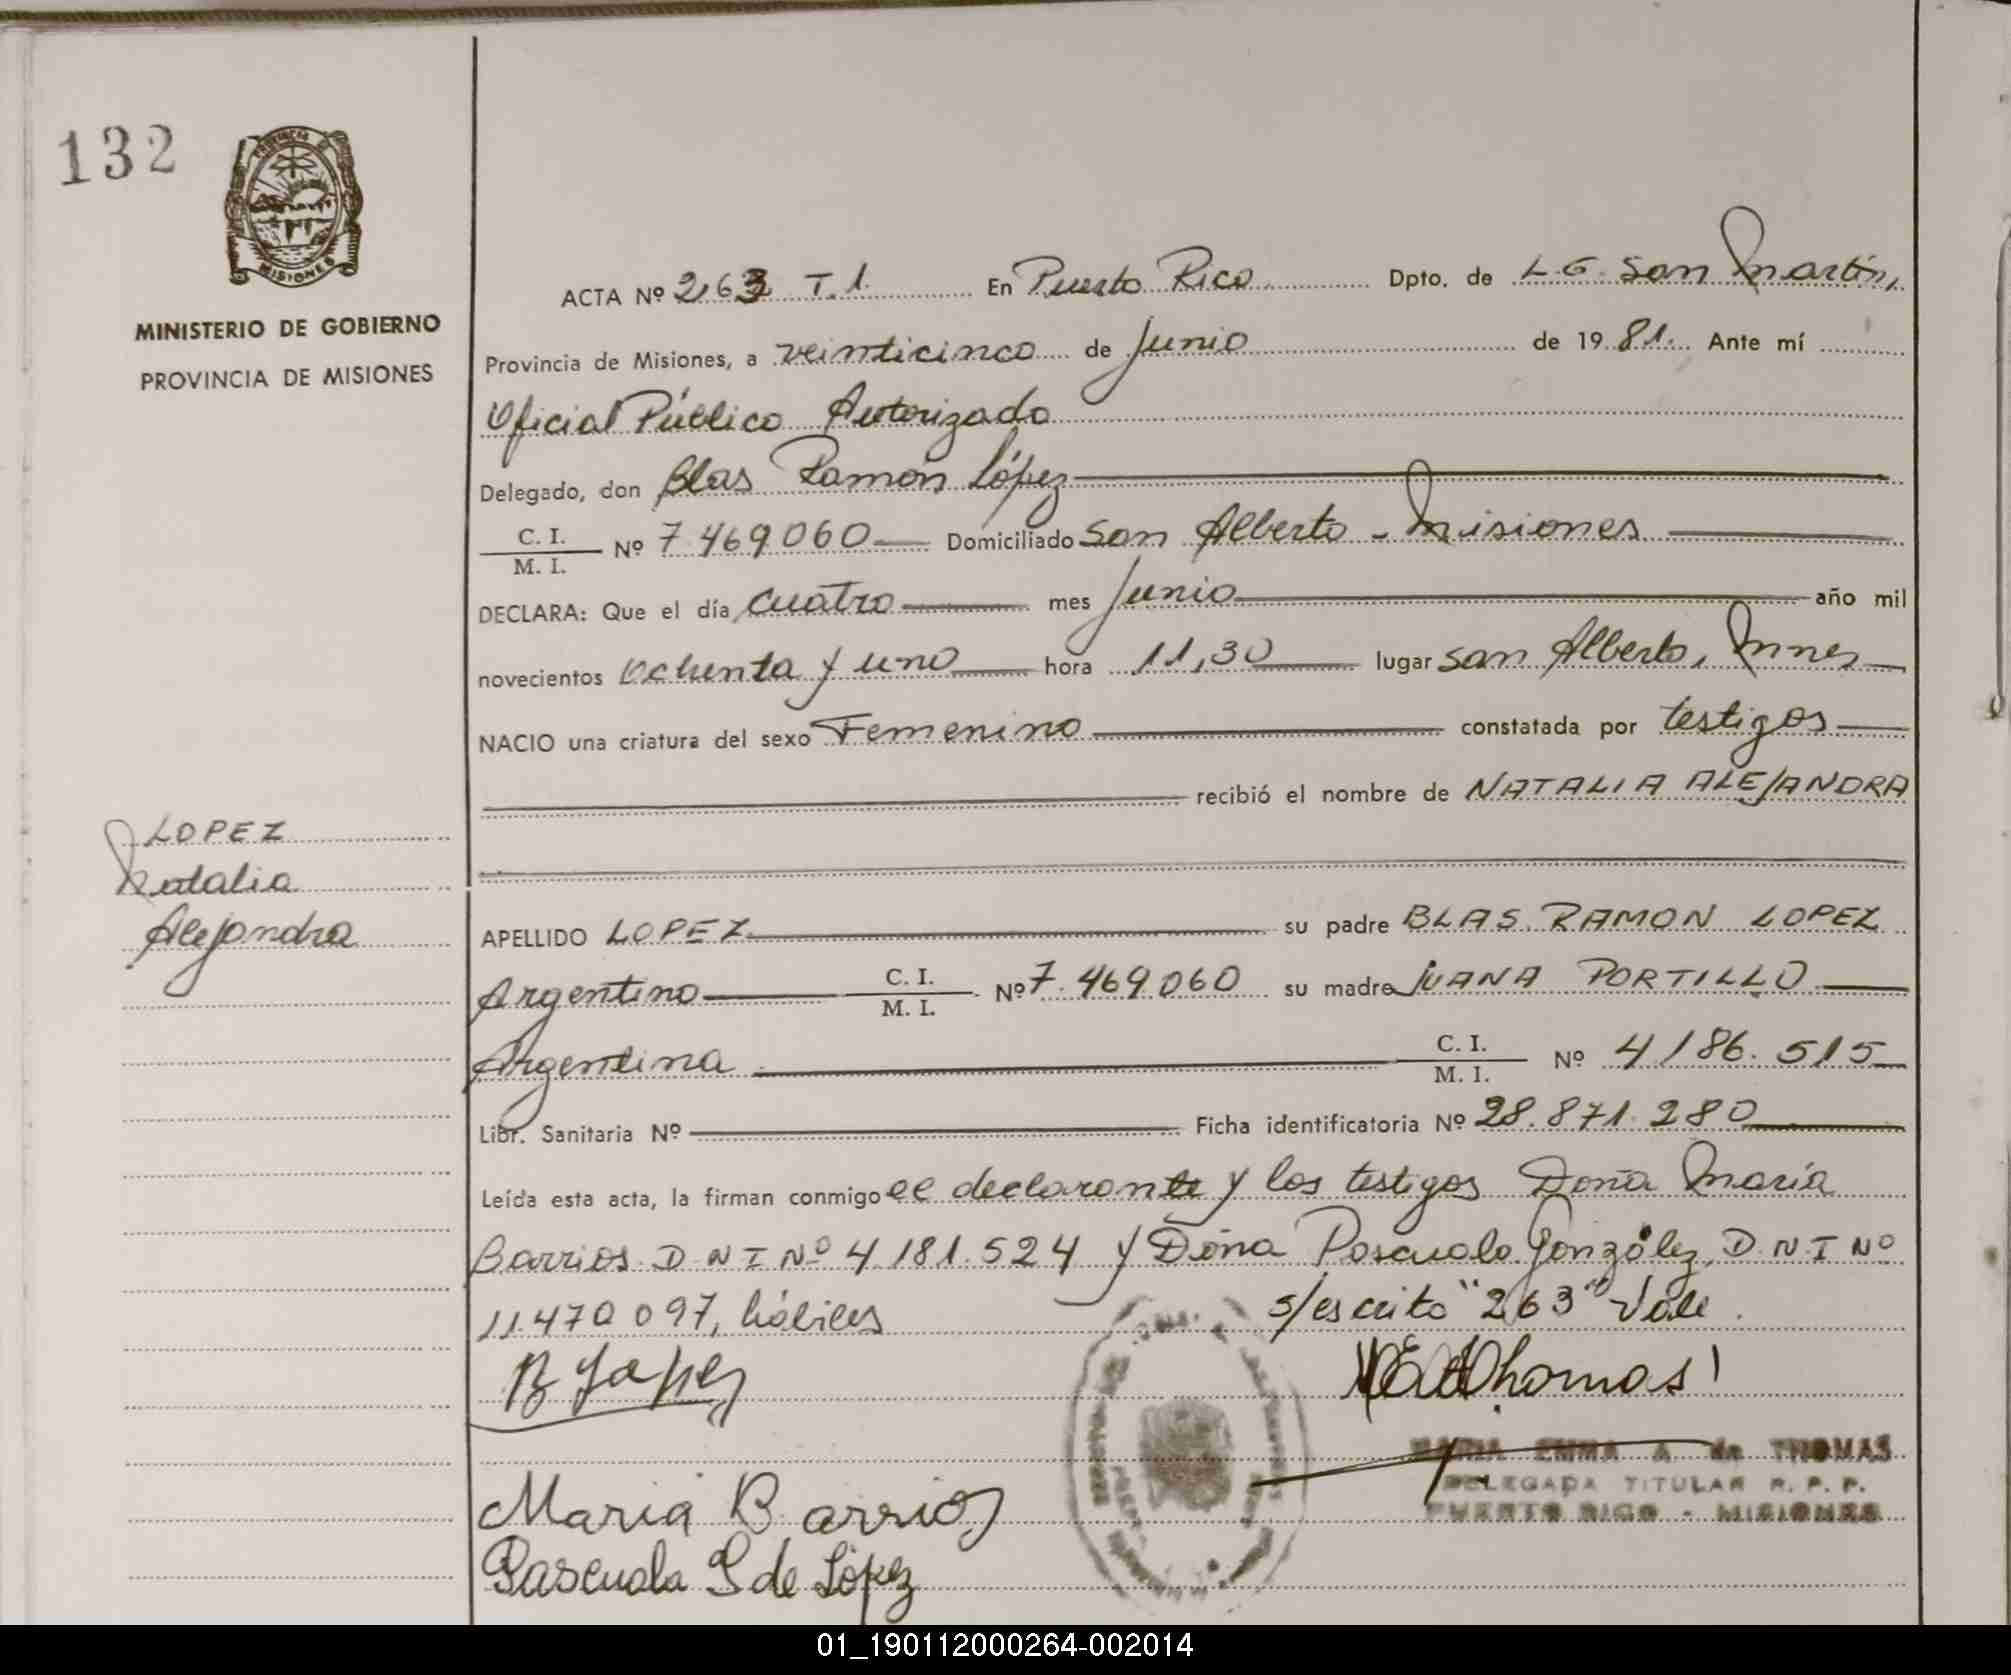 132
PROVINCIA DE
MISIONES
MINISTERIO DE GOBIERNO
PROVINCIA DE MISIONES
LOPEZ
Natalia
Alejandra
ACTA Nº 263 T.1. En Puerto Rico Dpto. de L.G. San Martín,
Provincia de Misiones, a veinticinco de Junio de 1981. Ante mí
Oficial Público Autorizado
Delegado, don Blas Ramón López
C. I. / M. I. Nº 7.469.060 Domiciliado San Alberto - Misiones
DECLARA: Que el día cuatro mes Junio año mil
novecientos ochenta y uno hora 11,30 lugar San Alberto, Mnes
NACIO una criatura del sexo Femenino constatada por testigos
recibió el nombre de NATALIA ALEJANDRA
APELLIDO LOPEZ su padre BLAS RAMON LOPEZ
Argentino C. I. / M. I. Nº 7.469.060 su madre JUANA PORTILLO
Argentina C. I. / M. I. Nº 4.186.515
Libr. Sanitaria Nº Ficha identificatoria Nº 28.871.280
Leída esta acta, la firman conmigo el declarante y los testigos Doña María
Barrios D N I Nº 4.181.524 y Doña Pascuala González, D N I Nº
11.470.097, hábiles s/escrito "263" Vale.
B López
MEAThomas
MARIA EMMA A de THOMAS
DELEGADA TITULAR R. P. P.
PUERTO RICO - MISIONES
Maria Barrios
Pascuala G de López
01_190112000264-002014